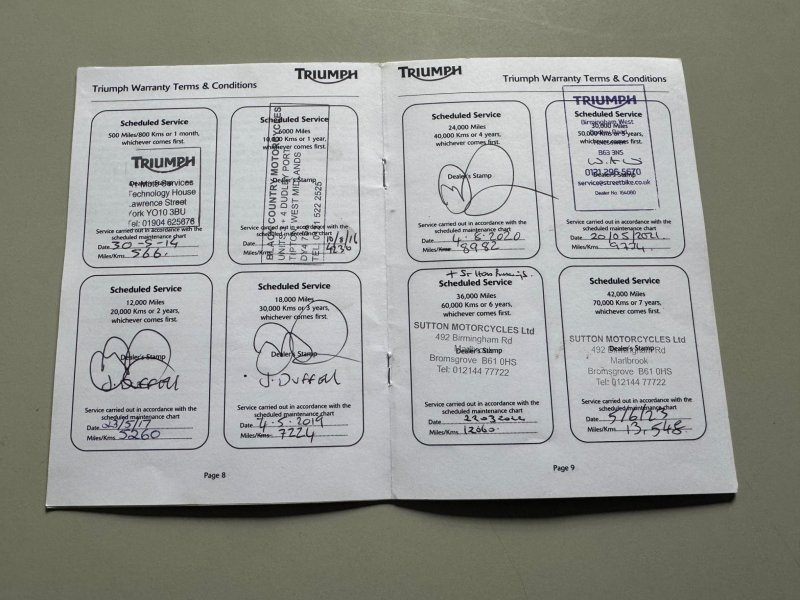 TRIUMPH
Triumph Warranty Terms & Conditions
Scheduled Service
500 Miles/800 Kms or 1 month,
whichever comes first.
TRIUMPH
Dealer's Stamp
Technology House
Lawrence Street
York YO10 3BU
Tel: 01904 625676
Service carried out in accordance with the
scheduled maintenance chart
Date 30-5-14
Miles/Kms 566.
Scheduled Service
6000 Miles
10,000 Kms or 1 year,
whichever comes first.
Dealer's Stamp
BLACK COUNTRY MOTORCYCLES
DUDLEY PORT
TIPTON WEST MIDLANDS
Service carried out in accordance with the
scheduled maintenance chart
Date 10/8/16
Miles/Kms 4230
Scheduled Service
12,000 Miles
20,000 Kms or 2 years,
whichever comes first.
Dealer's Stamp
J. Duffell
Service carried out in accordance with the
scheduled maintenance chart
Date 23/5/17
Miles/Kms 5260
Scheduled Service
18,000 Miles
30,000 Kms or 3 years,
whichever comes first.
Dealer's Stamp
J. Duffell
Service carried out in accordance with the
scheduled maintenance chart
Date 4.5.2019
Miles/Kms 7224
Page 8
TRIUMPH
Triumph Warranty Terms & Conditions
Scheduled Service
24,000 Miles
40,000 Kms or 4 year,
whichever comes first.
Dealer's Stamp
Service carried out in accordance with the
scheduled maintenance chart
Date 4.8.2020
Miles/Kms 8982
Scheduled Service
30,000 Miles
50,000 Kms or 5 years,
whichever comes first.
TRIUMPH
Birmingham West
B63 3NS
Dealer's Stamp
0121 296 5670
service@streetbike.co.uk
Service carried out in accordance with the
scheduled maintenance chart
Date 20/05/2021
Miles/Kms 9774
Scheduled Service
36,000 Miles
60,000 Kms or 6 years,
whichever comes first.
SUTTON MOTORCYCLES Ltd
492 Birmingham Rd
Marlbrook
Dealer's Stamp
Bromsgrove B61 0HS
Tel: 012144 77722
Service carried out in accordance with the
scheduled maintenance chart
Date 22032022
Miles/Kms 12060
Scheduled Service
42,000 Miles
70,000 Kms or 7 years,
whichever comes first.
SUTTON MOTORCYCLES Ltd
492 Birmingham Rd
Marlbrook
Dealer's Stamp
Bromsgrove B61 0HS
Tel: 012144 77722
Service carried out in accordance with the
scheduled maintenance chart
Date 5/6/23
Miles/Kms 13,548
Page 9